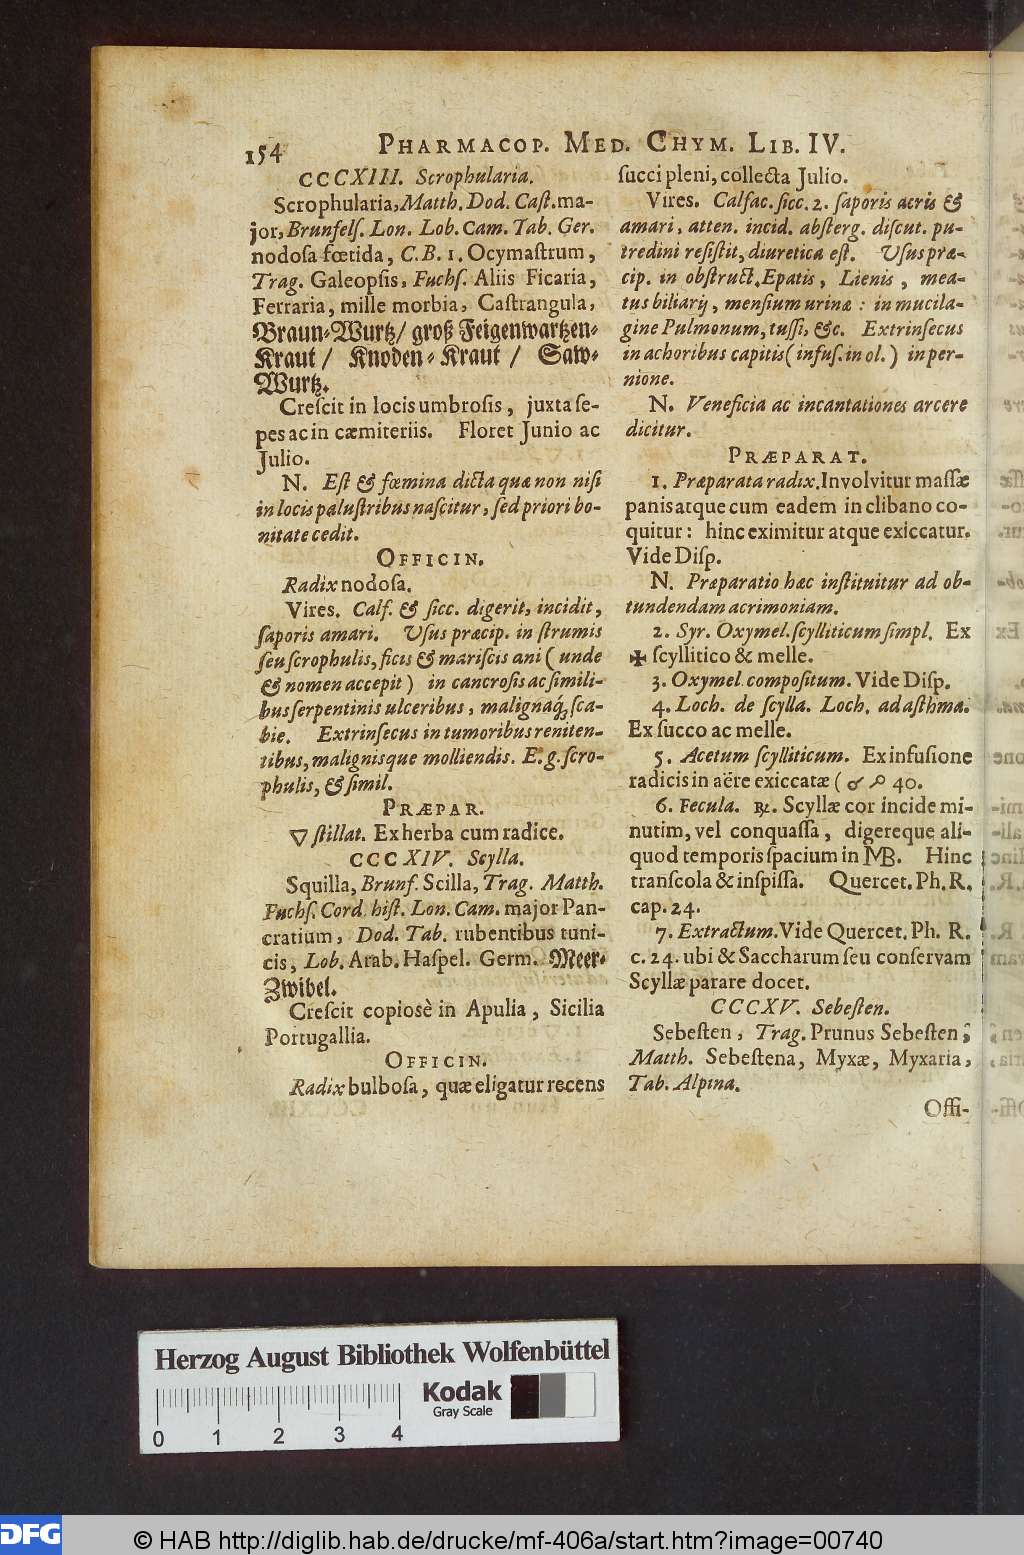 154 PHARMACOP. MED. CHYM. LIB. IV.
CCCXIII. Scrophularia.
Scrophularia, Matth. Dod. Caſt. ma-
jor, Brunfelſ. Lon. Lob. Cam. Tab. Ger.
nodoſa fœtida, C.B. 1. Ocymaſtrum,
Trag. Galeopſis, Fuchſ. Aliis Ficaria,
Ferraria, mille morbia, Caſtrangula,
Braun-Wurtz/ groß Feigenwartzen-
Kraut / Knoden-Kraut / Saw-
Wurtz.
Creſcit in locis umbroſis, juxta ſe-
pes ac in cæmiteriis. Floret Junio ac
Julio.
N. Eſt & fœmina dicta quæ non niſi
in locis paluſtribus naſcitur, ſed priori bo-
nitate cedit.
OFFICIN.
Radix nodoſa.
Vires. Calf. & ſicc. digerit, incidit,
ſaporis amari. Vſus præcip. in ſtrumis
ſeu ſcrophulis, ficis & mariſcis ani (unde
& nomen accepit) in cancroſis ac ſimili-
bus ſerpentinis ulceribus, malignaq́; ſca-
bie. Extrinſecus in tumoribus reniten-
tibus, malignisque molliendis. E.g. ſcro-
phulis, & ſimil.
PRÆPAR.
🜄 ſtillat. Ex herba cum radice.
CCCXIV. Scylla.
Squilla, Brunf. Scilla, Trag. Matth.
Fuchſ. Cord hiſt. Lon. Cam. major Pan-
cratium, Dod. Tab. rubentibus tuni-
cis, Lob. Arab. Haſpel. Germ. Meer-
Zwibel.
Creſcit copiosè in Apulia, Sicilia
Portugallia.
OFFICIN.
Radix bulboſa, quæ eligatur recens
ſucci pleni, collecta Julio.
Vires. Calfac. ſicc. 2. ſaporis acris &
amari, atten. incid. abſterg. diſcut. pu-
tredini reſiſtit, diuretica eſt. Vſus præ-
cip. in obſtruct. Epatis, Lienis, mea-
tus biliarij, menſium urinæ: in mucila-
gine Pulmonum, tuſſi, &c. Extrinſecus
in achoribus capitis (infuſ. in ol.) in per-
nione.
N. Veneficia ac incantationes arcere
dicitur.
PRÆPARAT.
1. Præparata radix. Involvitur maſſæ
panis atque cum eadem in clibano co-
quitur: hinc eximitur atque exiccatur.
Vide Diſp.
N. Præparatio hæc inſtituitur ad ob-
tundendam acrimoniam.
2. Syr. Oxymel. ſcylliticum ſimpl. Ex
✠ ſcyllitico & melle.
3. Oxymel compoſitum. Vide Diſp.
4. Loch. de ſcylla. Loch. ad aſthma.
Ex ſucco ac melle.
5. Acetum ſcylliticum. Ex infuſione
radicis in aëre exiccatæ ( ☌ 40.
6. Fecula. ℞. Scyllæ cor incide mi-
nutim, vel conquaſſa, digereque ali-
quod temporis ſpacium in MB. Hinc
tranſcola & inſpiſſa. Quercet. Ph. R.
cap. 24.
7. Extractum. Vide Quercet. Ph. R.
c. 24. ubi & Saccharum ſeu conſervam
Scyllæ parare docet.
CCCXV. Sebeſten.
Sebeſten, Trag. Prunus Sebeſten,
Matth. Sebeſtena, Myxæ, Myxaria,
Tab. Alpina.
Offi-
Herzog August Bibliothek Wolfenbüttel
Kodak
Gray Scale
0 1 2 3 4
DFG © HAB http://diglib.hab.de/drucke/mf-406a/start.htm?image=00740